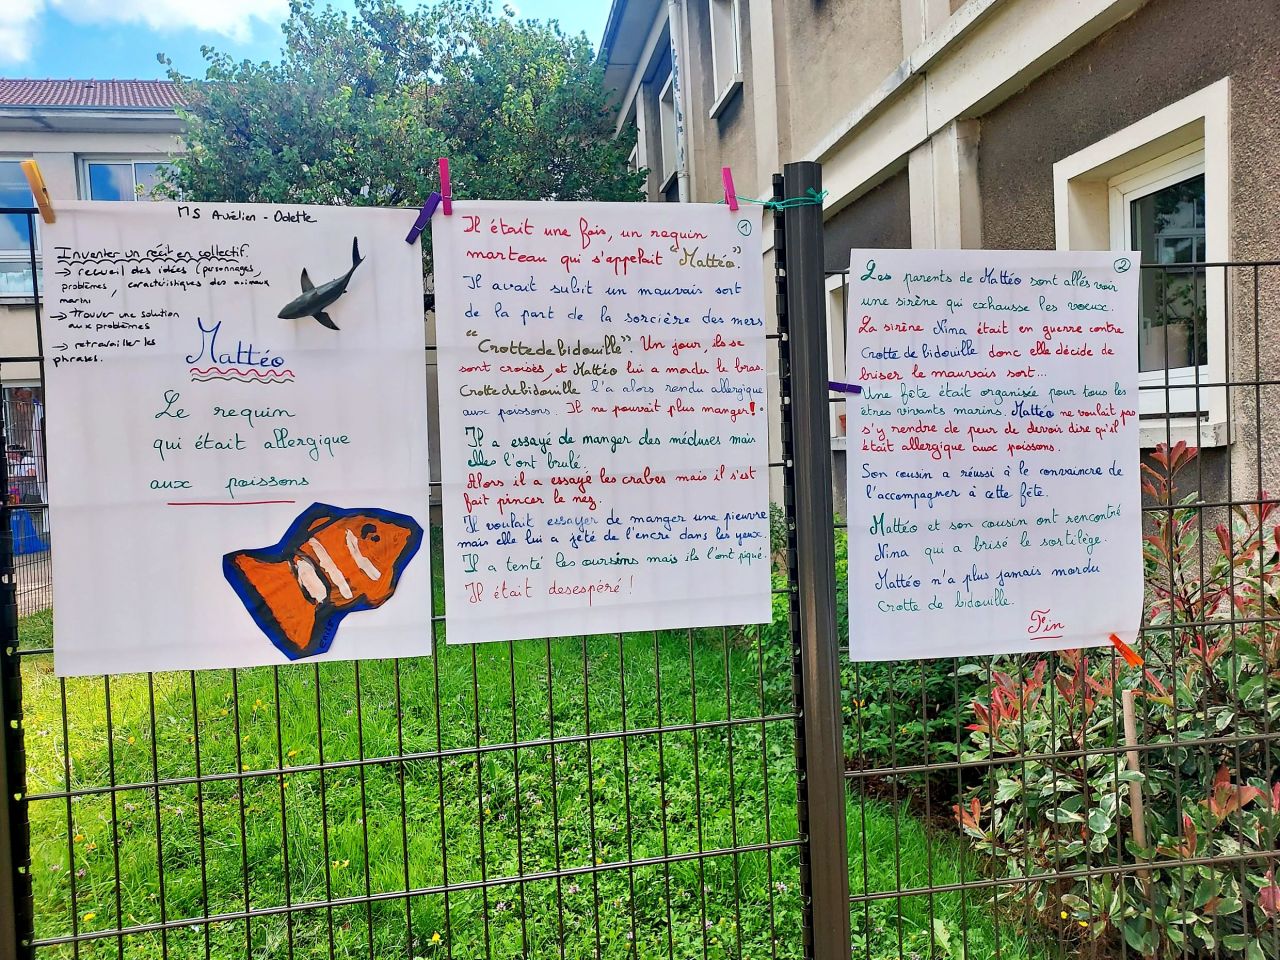 MS Aurélien - Odette
Inventer un récit en collectif.
→ recueil des idées (personnages,
problèmes, caractéristiques des animaux
marins
→ trouver une solution
aux problèmes
→ retravailler les
phrases.
Mattéo
Le requin
qui était allergique
aux poissons
①
Il était une fois, un requin
marteau qui s'appelait "Mattéo".
Il avait subit un mauvais sort
de la part de la sorcière des mers
"Crotte de bidouille". Un jour, ils se
sont croisés et Mattéo lui a mordu le bras.
Crotte de bidouille l'a alors rendu allergique
aux poissons. Il ne pouvait plus manger!
Il a essayé de manger des méduses mais
elles l'ont brulé.
Alors il a essayé les crabes mais il s'est
fait pincer le nez.
Il voulait essayer de manger une pieuvre
mais elle lui a jété de l'encre dans les yeux.
Il a tenté les oursins mais ils l'ont piqué.
Il était desespéré !
②
Les parents de Mattéo sont allés voir
une sirène qui exhausse les voeux.
La sirène Nina était en guerre contre
Crotte de bidouille donc elle décide de
briser le mauvais sort...
Une fête était organisée pour tous les
êtres vivants marins. Mattéo ne voulait pas
s'y rendre de peur de devoir dire qu'il
était allergique aux poissons.
Son cousin a réussi à le convaincre de
l'accompagner à cette fête.
Mattéo et son cousin ont rencontré
Nina qui a brisé le sortilège.
Mattéo n'a plus jamais mordu
Crotte de bidouille.
Fin